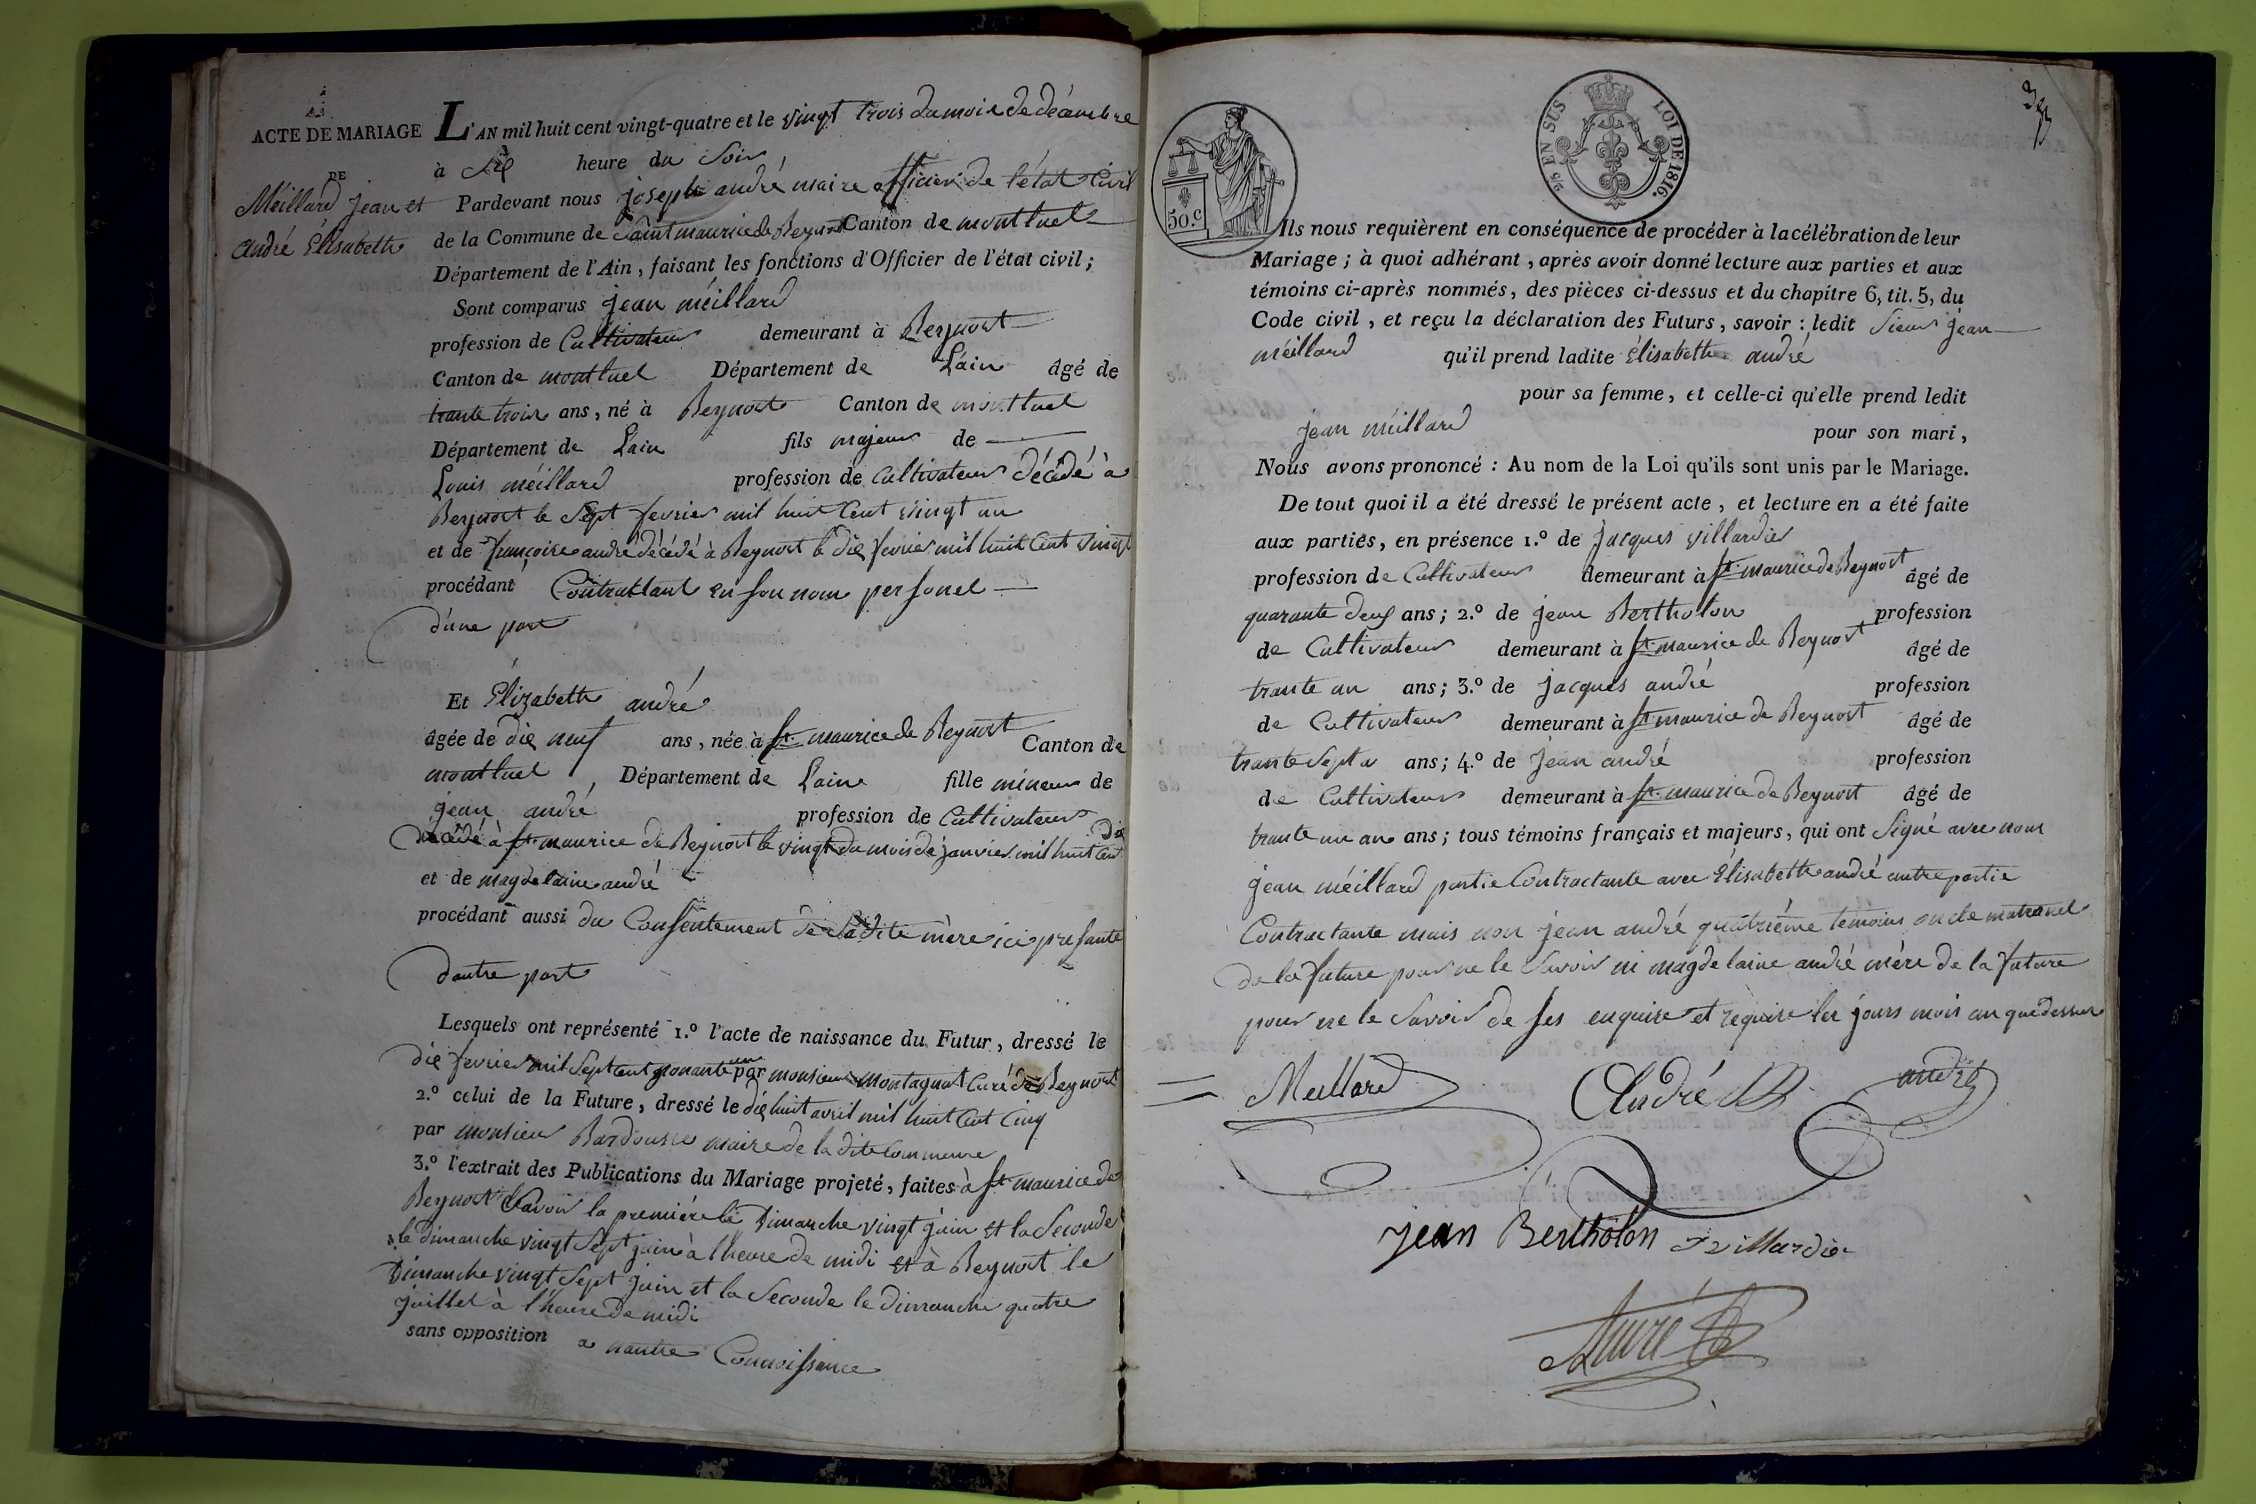 ACTE DE MARIAGE
DE
Méillard jean et
andré Élisabeth
L'AN mil huit cent vingt-quatre et le vingt trois du mois de décembre
à six heure du soir
Pardevant nous joseph andré maire officier de l'état Civil
de la Commune de Saint maurice de Beynost Canton de montluel
Département de l'Ain, faisant les fonctions d'Officier de l'état civil;
Sont comparus jean méillard
profession de Cultivateur demeurant à Beynost
Canton de montluel Département de Lain âgé de
trante trois ans, né à Beynost Canton de montluel
Département de Lain fils majeur de
Louis méillard profession de Cultivateur décédé à
Beynost le Sept fevrier mil huit Cent vingt un
et de françoise andré décédé à Beynost le dix fevrier mil huit Cent vingt
procédant Contractant en son nom personel
d'une part
Et Élizabeth andré
âgée de dix neuf ans, née à St. maurice de Beynost Canton de
montluel Département de Lain fille mineur de
jean andré profession de Cultivateur
décédé à St. maurice de Beynost le vingt du mois de janvier mil huit Cent dix
et de magdelaine andré
procédant aussi du Consentement de Ladite mère ici presante
dautre part
Lesquels ont représenté 1.º l'acte de naissance du Futur, dressé le
dix fevrier mil Sept Cent nonante un par monsieur montagnat Curé de Beynost
2.º celui de la Future, dressé le dix huit avril mil huit Cent Cinq
par monsieur Bardousse maire de la dite Commune
3.º l'extrait des Publications du Mariage projeté, faites à St maurice de
Beynost Savoir la première le Dimanche vingt juin et la Seconde
le dimanche vingt Sept juin à l'heure de midi et à Beynost le
Dimanche vingt Sept juin et la Seconde le dimanche quatre
juillet à l'heure de midi
sans opposition a nautre Connoissance
50.c
2/5 EN SUS LOI DE 1816.
Ils nous requièrent en conséquence de procéder à la célébration de leur
Mariage; à quoi adhérant, après avoir donné lecture aux parties et aux
témoins ci-après nommés, des pièces ci-dessus et du chapitre 6, tit. 5, du
Code civil, et reçu la déclaration des Futurs, savoir: ledit Sieur jean
méillard qu'il prend ladite Élisabeth andré
pour sa femme, et celle-ci qu'elle prend ledit
jean méillard pour son mari,
Nous avons prononcé: Au nom de la Loi qu'ils sont unis par le Mariage.
De tout quoi il a été dressé le présent acte, et lecture en a été faite
aux parties, en présence 1.º de jacques villardier
profession de Cultivateur demeurant à St. maurice de Beynost âgé de
quarante deux ans; 2.º de jean Bertholon profession
de Cultivateur demeurant à St. maurice de Beynost âgé de
trante un ans; 3.º de jacques andré profession
de Cultivateur demeurant à St maurice de Beynost âgé de
trante Sept a ans; 4.º de jean andré profession
de Cultivateur demeurant à St. maurice de Beynost âgé de
trante un an ans; tous témoins français et majeurs, qui ont Signé avec nous
jean méillard partie Contractante avec Élisabeth andré autre partie
Contractante mais non jean andré quatrième temoins oncle matranel
de la future pour ne le Savoir ni magdelaine andré mère de la future
pour ne le Savoir de ses enquise et requise les jours mois an que dessus
Meillard André andré
jean Bertholon J villardier
André